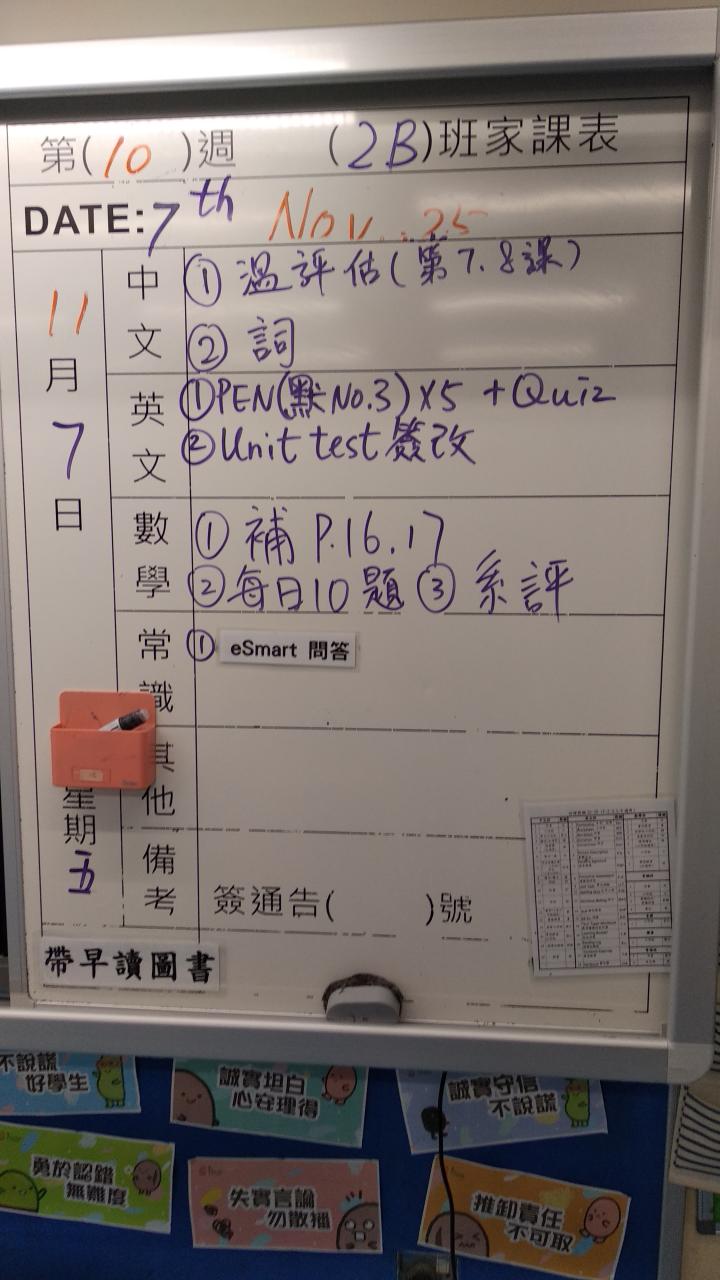 第(10)週 (2B)班家課表
DATE: 7th Nov. 25
11月7日
星期五
中文
① 溫評估(第7.8課)
② 詞
英文
①PEN(默No.3)X5 +Quiz
②Unit test簽改
數學
① 補 P.16.17
②每日10題 ③ 系評
常識
① eSmart 問答
其他
備考
簽通告( )號
帶早讀圖書
不說謊
好學生
誠實坦白
心安理得
誠實守信
不說謊
勇於認錯
無難度
失實言論
勿散播
推卸責任
不可取